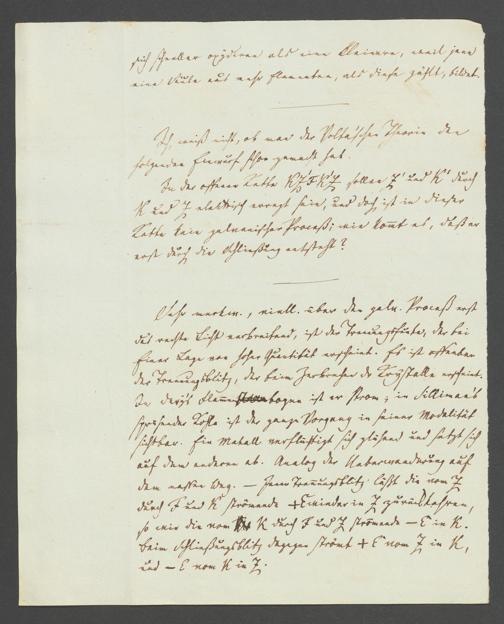 sich schneller oxydiren als eine kleinere, weil jene
eine Säule aus mehr Elementen, als diese zählt, bildet.
Ich weiß nicht, ob man der Volta'schen Theorie den
folgenden Einwurf schon gemacht hat.
In der offenen Kette K'Z'FKZ sollen Z' und K' durch
K und Z elektrisch erregt sein, und doch ist in dieser
Kette kein galvanischer Proceß; wie kommt es, daß er
erst durch die Schließung entsteht?
Sehr merkw., viell. über den galv. Proceß erst
das rechte Licht verbreitend, ist der Trennungsfunke, der bei
einer Lage von hoher Quantität erscheint. Es ist offenbar
der Trennungsblitz, der beim Zerbrechen der Krystalle erscheint.
In Davy's Flammenbogen ist er Strom; in Silliman's
sprühender Kohle ist der ganze Vorgang in seiner Modalität
sichtbar. Ein Metall verflüchtigt sich glühend und setzt sich
auf dem anderen ab. Analog der Ueberwanderung auf
dem nassen Weg. — Jener Trennungsblitz läßt die vom Z
durch F und K strömende +E wieder in Z zurückkehren,
so wie die vom K durch F und Z strömende — E in K.
beim Schließungsblitz dagegen strömt + E vom Z in K,
und — E vom K in Z.